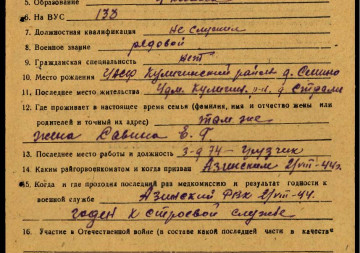 5. Образование
6. На ВУС 133
7. Должностная квалификация не служил
8. Военное звание рядовой
9. Гражданская специальность нет
10. Место рождения Кумгинский район д.
11. Последнее место жительства Удм. р-н д.
12. Где проживает в настоящее время семья (фамилия, имя и отчество жены или
родителей и точный их адрес) там же
жена Савина Е. Г.
13. Последнее место работы и должность з-д 74 – грузчик
14. Каким райгорвоенкоматом и когда призван Азинским 2/VIII-44г.
15. Когда и где проходил последний раз медкомиссию и результат годности к
военной службе Азинский РВК 2/VIII-44.
годен к строевой службе
16. Участие в Отечественной войне (в составе какой последней части в качеств